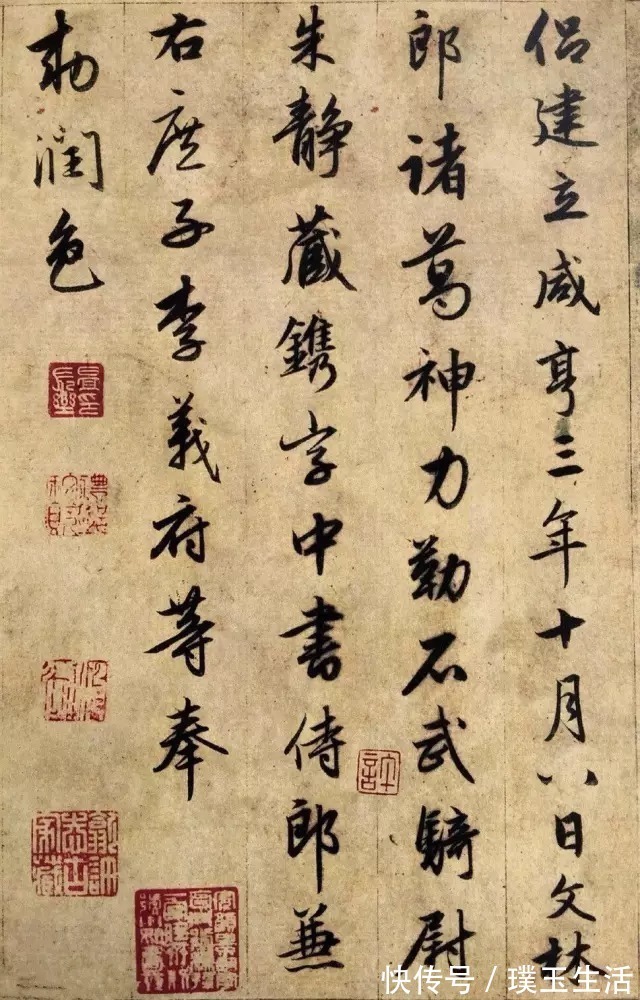 侶建立咸亨三年十月八日文林
郎諸葛神力勒石武騎尉
朱靜藏鐫字中書侍郎兼
右庶子李義府等奉
勅潤色
快传号 / 璞玉生活